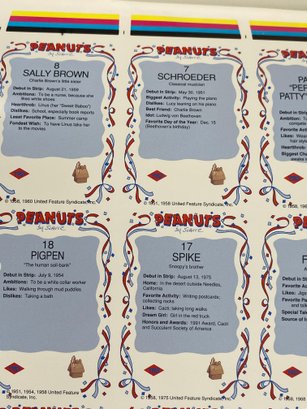 PEANUTS
by Schulz
8
SALLY BROWN
Charlie Brown's little sister
Debut in Strip: August 21, 1959
Ambitions: To be a nurse, because she
likes white shoes
Heartthrob: Linus (her "Sweet Baboo")
Dislikes: School, especially book reports
Least Favorite Place: Summer camp
Fondest Wish: To have Linus take her
to the movies
1958, 1960 United Feature Syndicate, Inc.
PEANUTS
by Schulz
7
SCHROEDER
Classical musician
Debut in Strip: May 30, 1951
Biggest Activity: Playing the piano
Dislikes: Lucy leaning on his piano
Best Friend: Charlie Brown
Idol: Ludwig von Beethoven
Favorite Day of the Year: Dec. 15
(Beethoven's birthday)
© 1951, 1958 United Feature Syndicate, Inc.
PEA
PA
"PEP
PATTY
Debut
Heart
Chara
Biggest Cha
© 1958,
PEANUTS
by Schulz
18
PIGPEN
"The human soil-bank"
Debut in Strip: July 9, 1954
Ambitions: To be a white collar worker
Likes: Walking through mud puddles
Dislikes: Taking a bath
© 1951, 1954, 1958 United Feature
Syndicate, Inc.
PEANUTS
by Schulz
17
SPIKE
Snoopy's brother
Debut in Strip: August 13, 1975
Home: In the desert outside Needles,
California
Favorite Activity: Writing postcards;
collecting rocks
Likes: Cacti, taking long walks
Dream Girl: Girl in the red truck
Honors and Awards: 1991 Award, Cacti
and Succulent Society of America
© 1958, 1975 United Feature Syndicate, Inc.
PE
F
Debut in S
Ambition:
Special Tal
Source of I